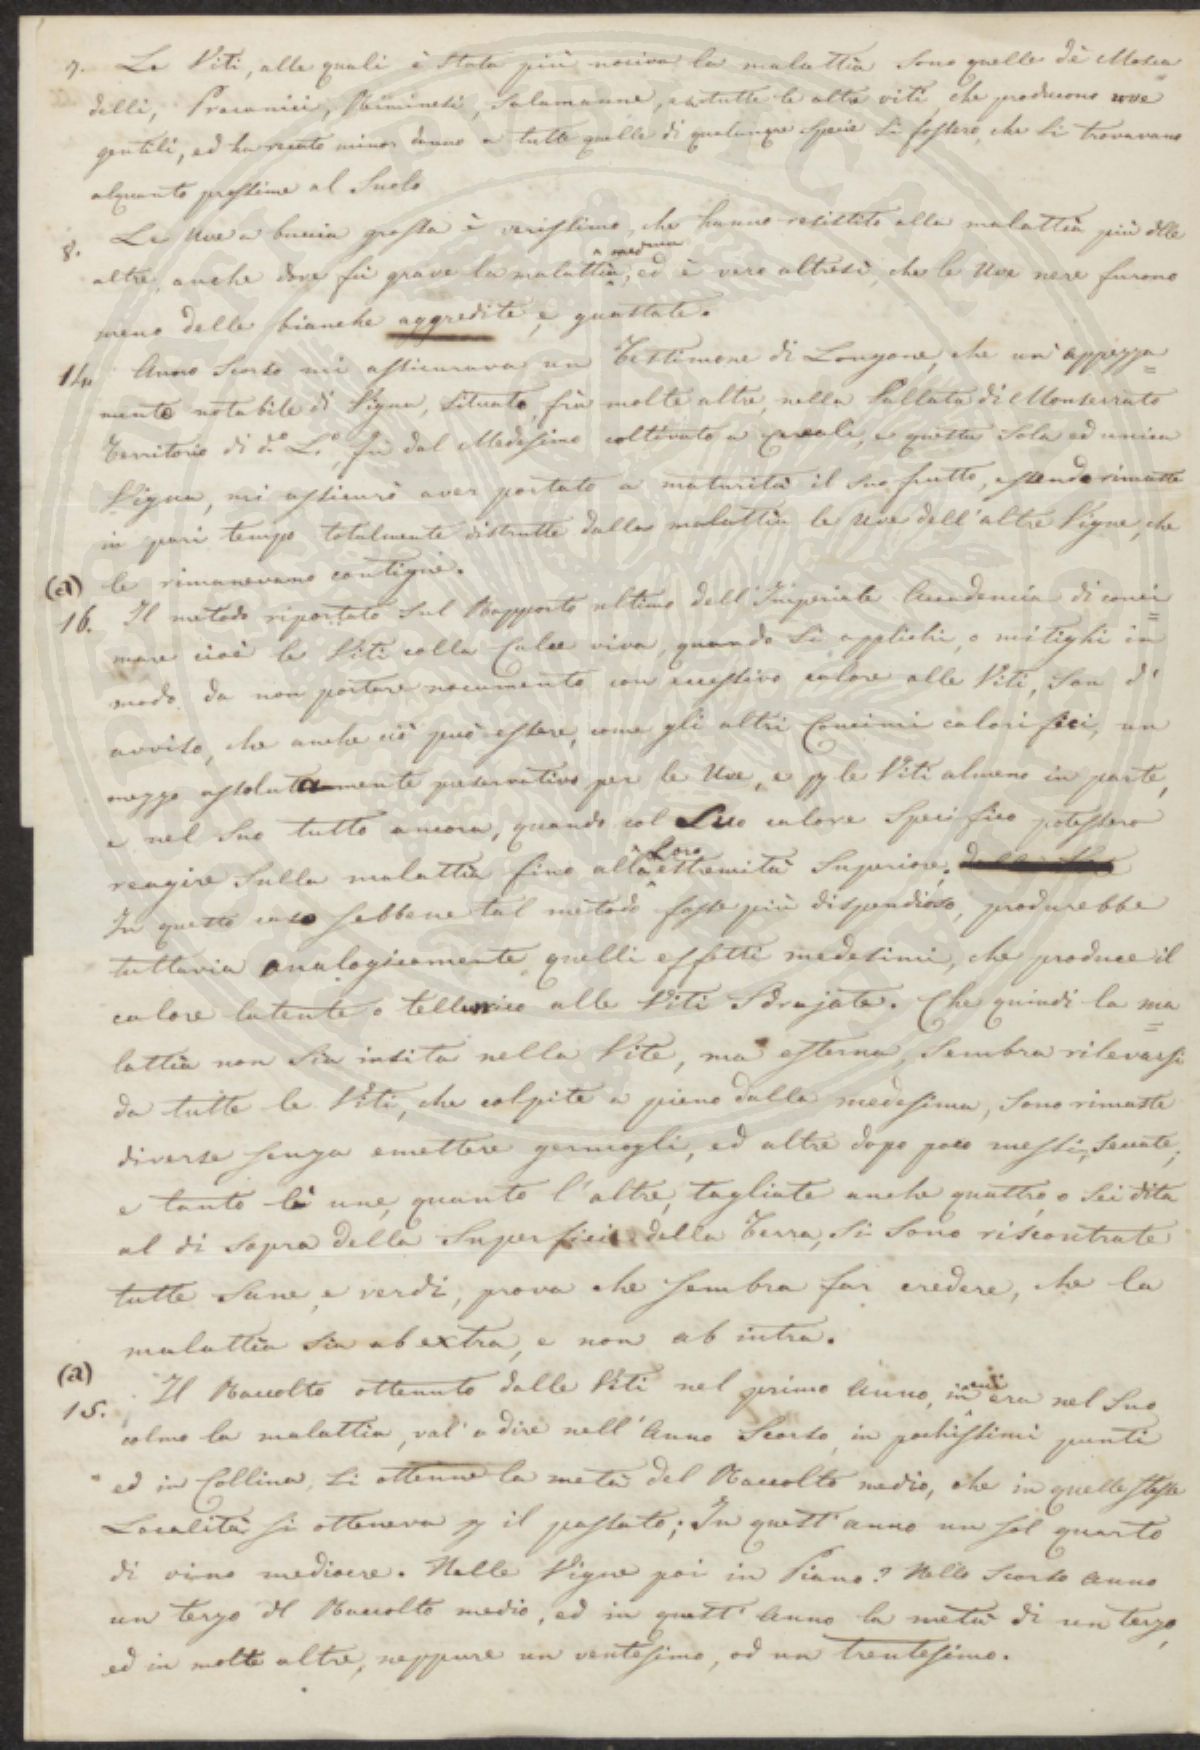 7. Le Viti, alle quali è stata più nociva la malattia sono quelle di Mosca
delli, Procanici, Riminesi, Salamanne, e tutte le altre viti che producono uve
gentili, ed ha recato minor danno a tutte quelle di qualunque specie si fossero, che si trovavano
alquanto prossime al Suolo
8. Le Uve a buccia grossa è verissimo, che hanno resistito alla malattia più dlle
altre, anche dove fu grave la malattia, ed è vero altresì, che le Uve nere furono
meno delle bianche aggredite, e guastate.
14. Anno Scorso mi assicurava un Testimone di Longone, che un' appezza=
mento notabile di Vigna, situato, frà molte altre, nella Vallata di Monserrato
Territorio di do. Lo. fù dal Medesimo coltivato a cereali, e questa sola ed unica
Vigna, mi assicurò aver portato a maturità il suo frutto, essendo rimaste
in pari tempo totalmente distrutte dalla malattia le Uve dell'altre Vigne, che
le rimanevano contigue.
(a)
16. Il metodo riportato sul Rapporto ultimo dell'Imperiale Accademia di conci=
mare cioè le Viti colla Calce viva, quando si applichi, o mitighi in
modo da non portare nocumento con eccessivo calore alle Viti, son d'
avviso, che anche ciò può essere, come gli altri Concimi calorifici, un
mezzo assolutamente preservativo per le Uve, e p le Viti almeno in parte,
e nel suo tutto ancora, quando col suo calore specifico potessero
reagire sulla malattia fino alla Loro estremità superiore.
In questo caso sebbene tal metodo fosse più dispendioso, produrebbe
tuttavia analogicamente quelli effetti medesimi, che produce il
calore latente o tellurico alle Viti Sdrajate. Che quindi la ma=
lattia non sia insita nella Vite, ma esterna, sembra rilevarsi
da tutte le Viti, che colpite a pieno dalla medesima, sono rimaste
diverse senza emettere germogli, ed altre dopo poco messi, seccate,
e tanto le une, quanto l'altre, tagliate anche quattro, o sei dita
al di sopra della superficie della Terra, si sono riscontrate
tutte sane, e verdi, prova che sembra far credere, che la
malattia sia ab extra, e non ab intra.
(a)
15. Il Raccolto ottenuto dalle Viti nel primo Anno, in cui era nel suo
colmo la malattia, val'a dire nell'Anno Scorso, in pochissimi punti
ed in Collina, si ottenne la metà del Raccolto medio, che in quelle stesse
Località si otteneva p il passato; In quest'anno un sol quarto
di vino mediocre. Nelle Vigne poi in Piano? Nello Scorso anno
un terzo dl Raccolto medio, ed in quest' Anno la metà di un terzo,
ed in molte altre, neppure un ventesimo, od un trentesimo.